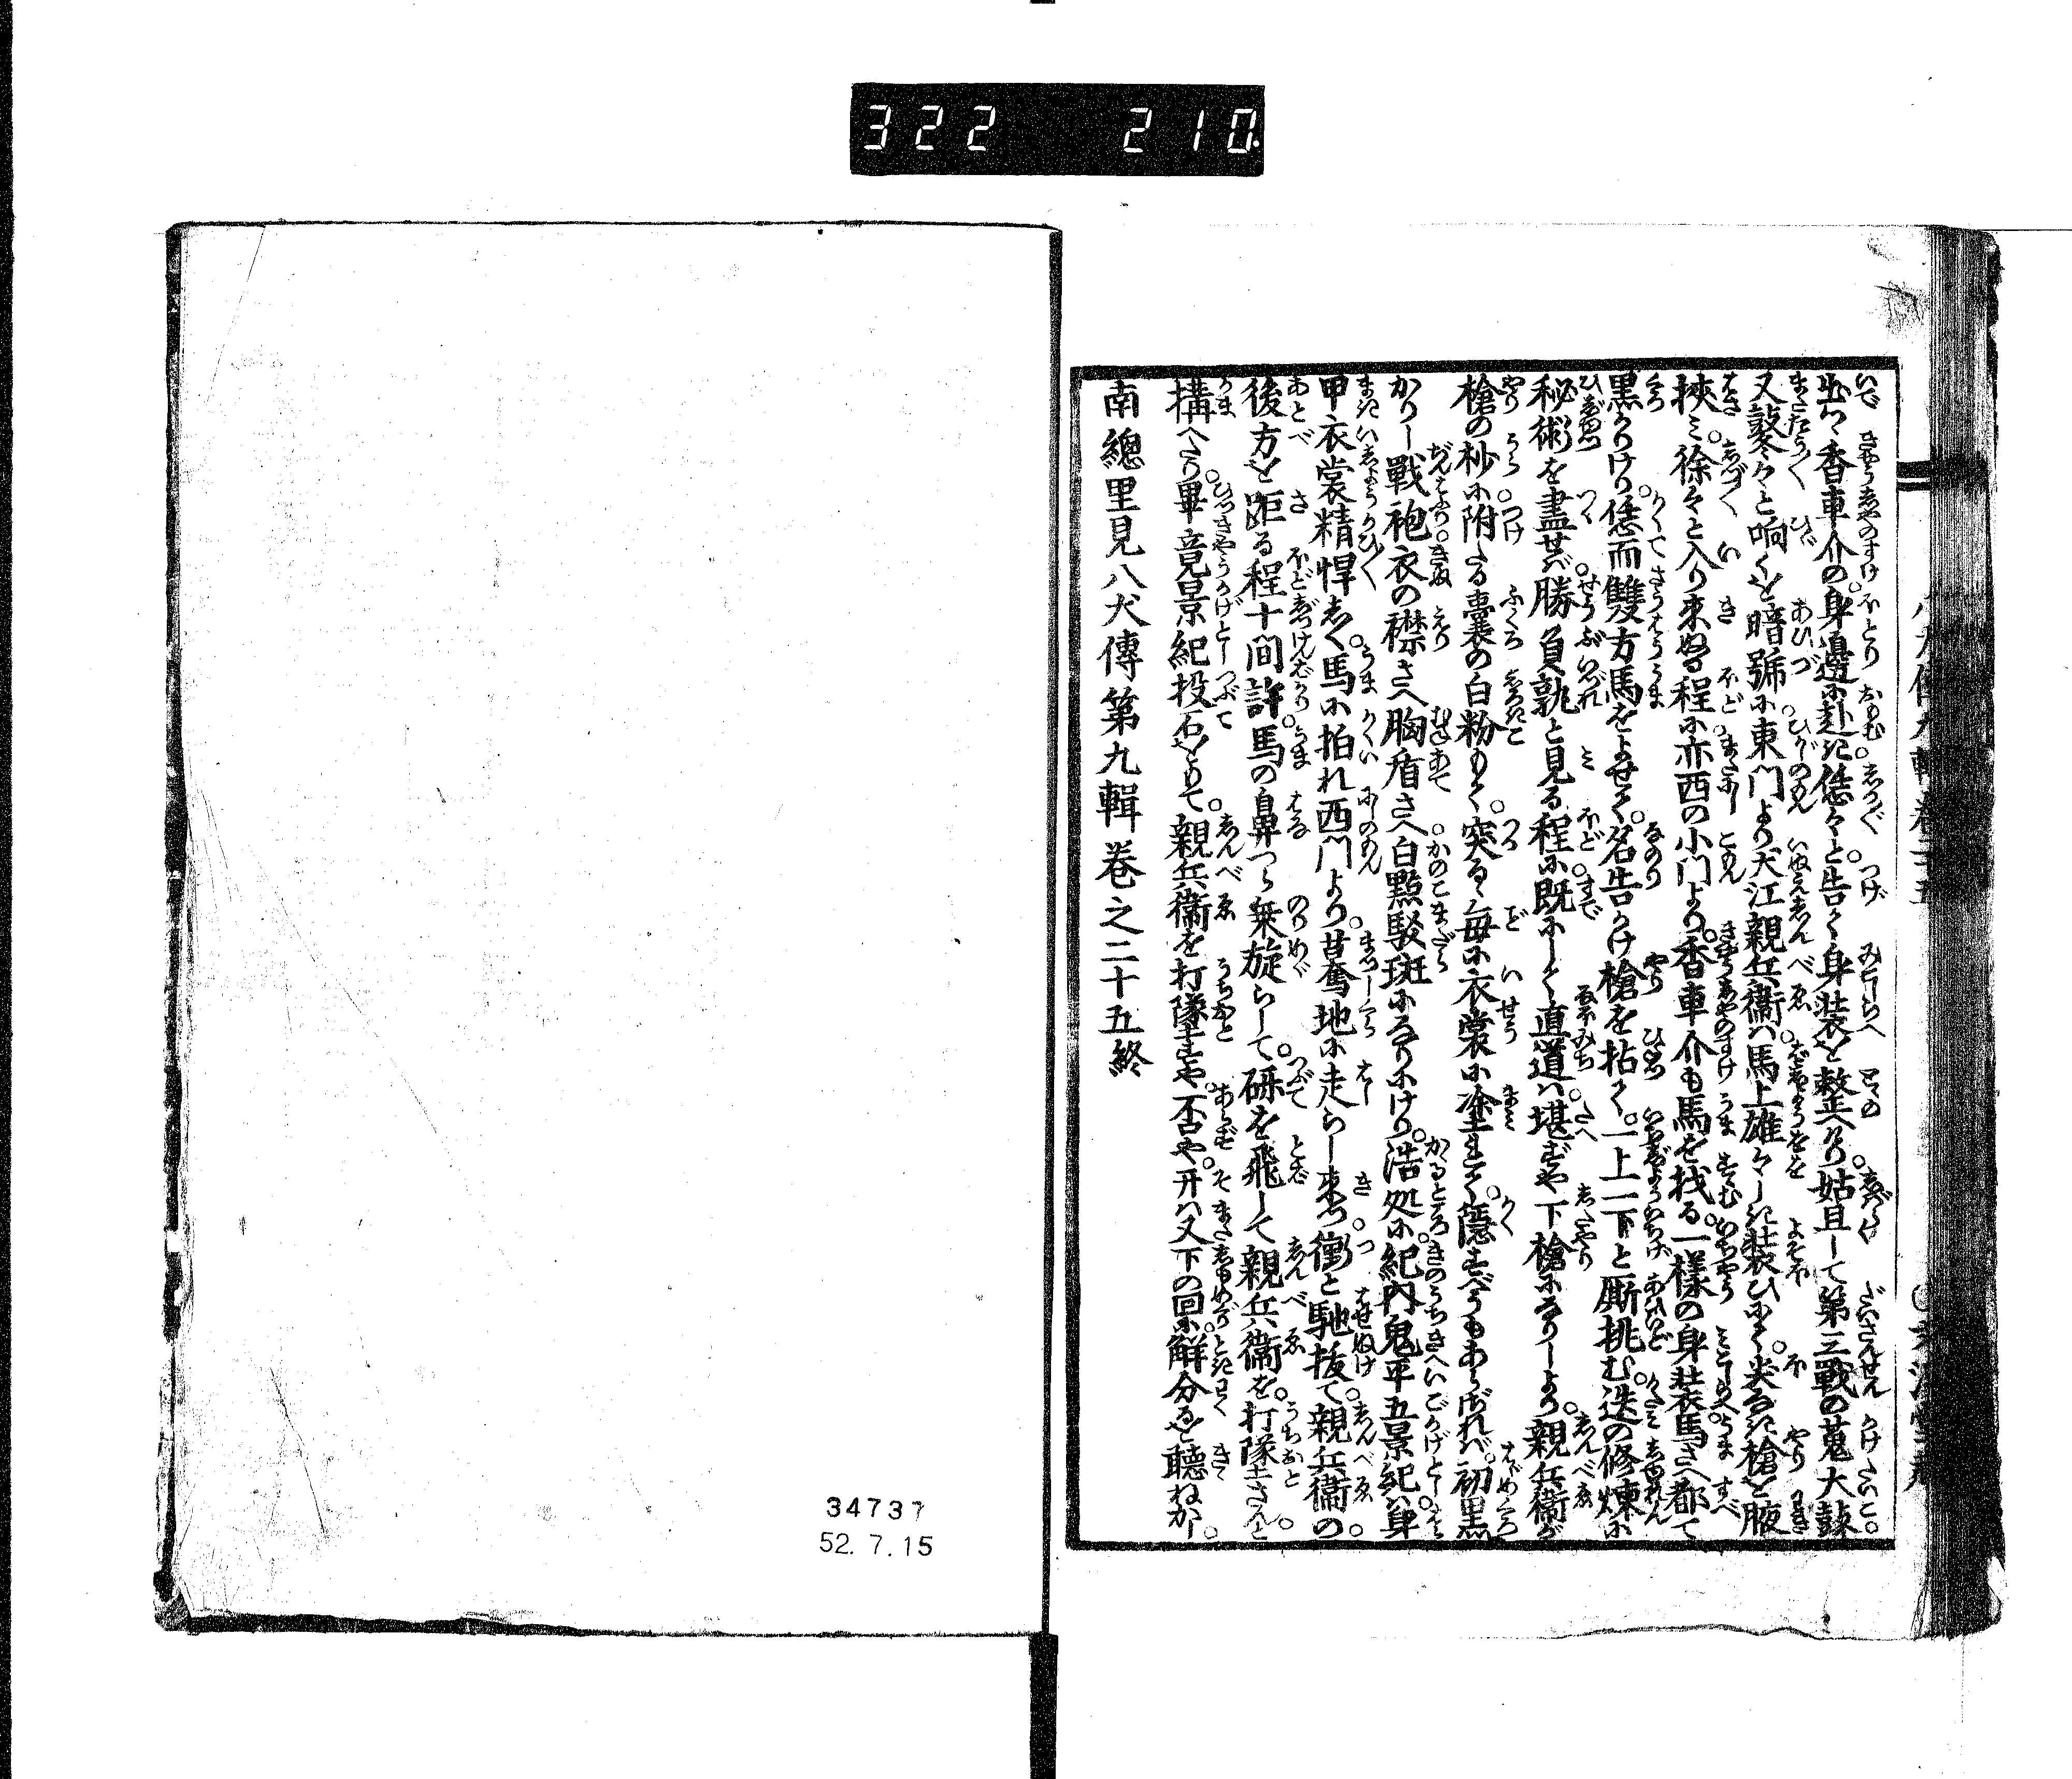 322 210
出つゝ香車介の身邊に赴き恁々と告て身装を整へけり姑且して第三戰の蒐大鼓
又鼕々と响くを暗號に東門より犬江親兵衞ハ馬上雄々しき装ひにて尖なき槍を腋
挾ミ徐々と入り來ぬる程に亦西の小門より香車介も馬を找る一樣の身装衣馬さへ都て
黒かりけり恁而雙方馬をよせて名告かけ槍を拈て一上一下と厮挑む迭の修煉に
秘術を盡せバ勝負孰と見る程に既にして直道ハ堪ずや下槍になりしより親兵衞が
槍の杪に附たる嚢の白粉もて突るゝ毎に衣裳に塗ミれて隱すべうもあらざれバ初黒
かりし戰袍衣の襟さへ胸盾さへ白點駁斑になりにけり浩処に紀内鬼平五景紀ハ身
甲衣裳精悍しく馬に拍れ西門より驀地に走らし來つ衝と馳拔て親兵衞の
後方を距る程十間許馬の鼻つら乗旋らして礫を飛して親兵衞を打墜さんと
搆へたり畢竟景紀投石をもて親兵衞を打墜すや否や开ハ又下の回に觧分るを聽ねかし
南總里見八犬傳第九輯巻之二十五終
34737
52.7.15